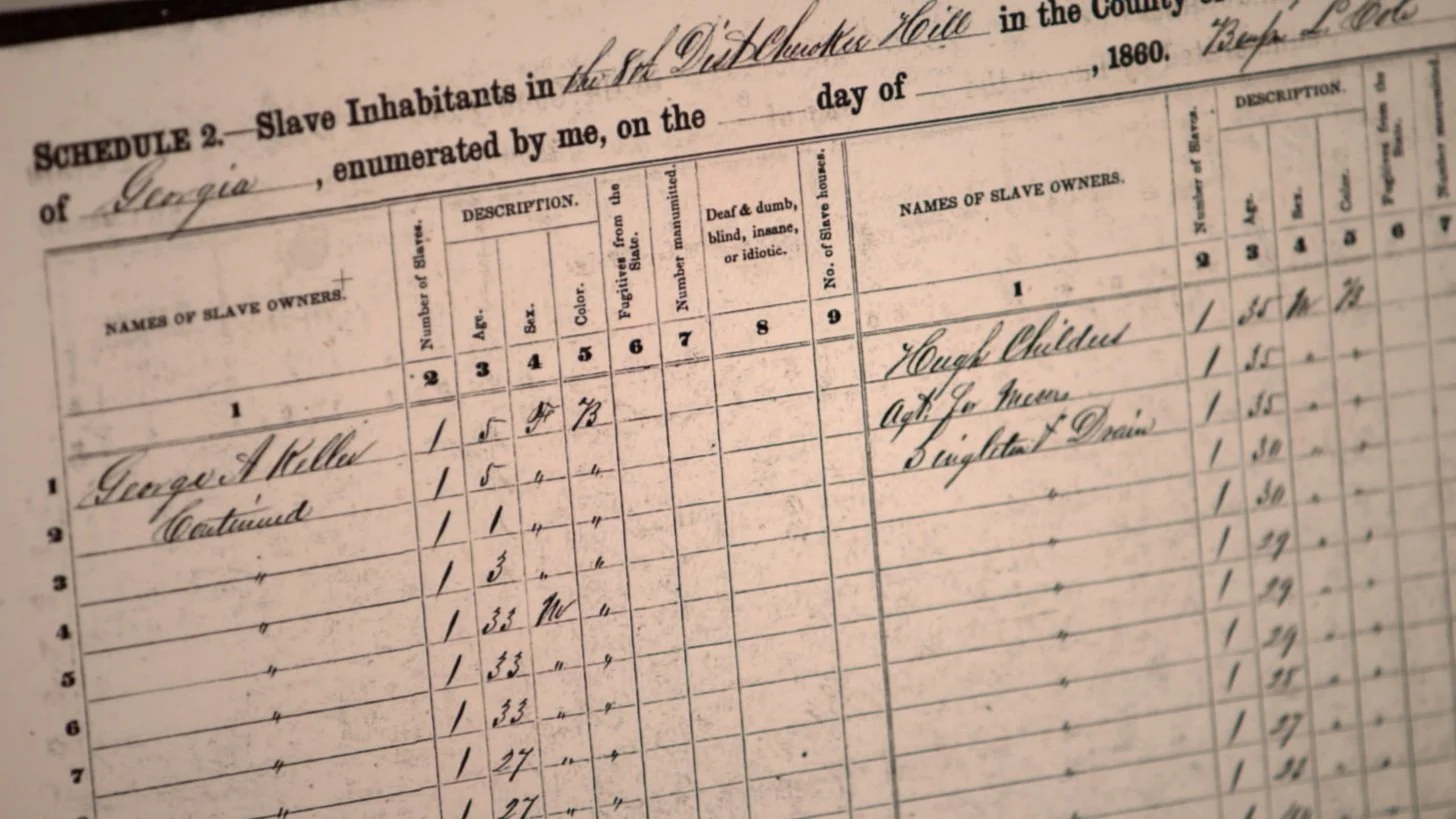 SCHEDULE 2.—Slave Inhabitants in the 8th Dist Cherokee Hill in the County of
of Georgia, enumerated by me, on the day of , 1860. Benj L. Cole
NAMES OF SLAVE OWNERS. Number of Slaves. DESCRIPTION. Age. Sex. Color. Fugitives from the State. Number manumitted. Deaf & dumb, blind, insane, or idiotic. No. of Slave houses. NAMES OF SLAVE OWNERS. Number of Slaves. DESCRIPTION. Age. Sex. Color. Fugitives from the State. Number manumitted.
1 2 3 4 5 6 7 8 9 1 2 3 4 5 6 7
1 George A Keller 1 5 F B Hugh Childers 1 35 M B
2 Continued 1 5 " " Agt. for Messrs 1 35 " "
3 " 1 1 " " Singleton & Drain 1 35 " "
4 " 1 3 " " " 1 30 " "
5 " 1 33 M " " 1 30 " "
6 " 1 33 " " " 1 29 " "
7 " 1 33 " " " 1 29 " "
" 1 27 " " " 1 29 " "
1 27 " " " 1 28 " "
" 1 27 " "
1 " "
1